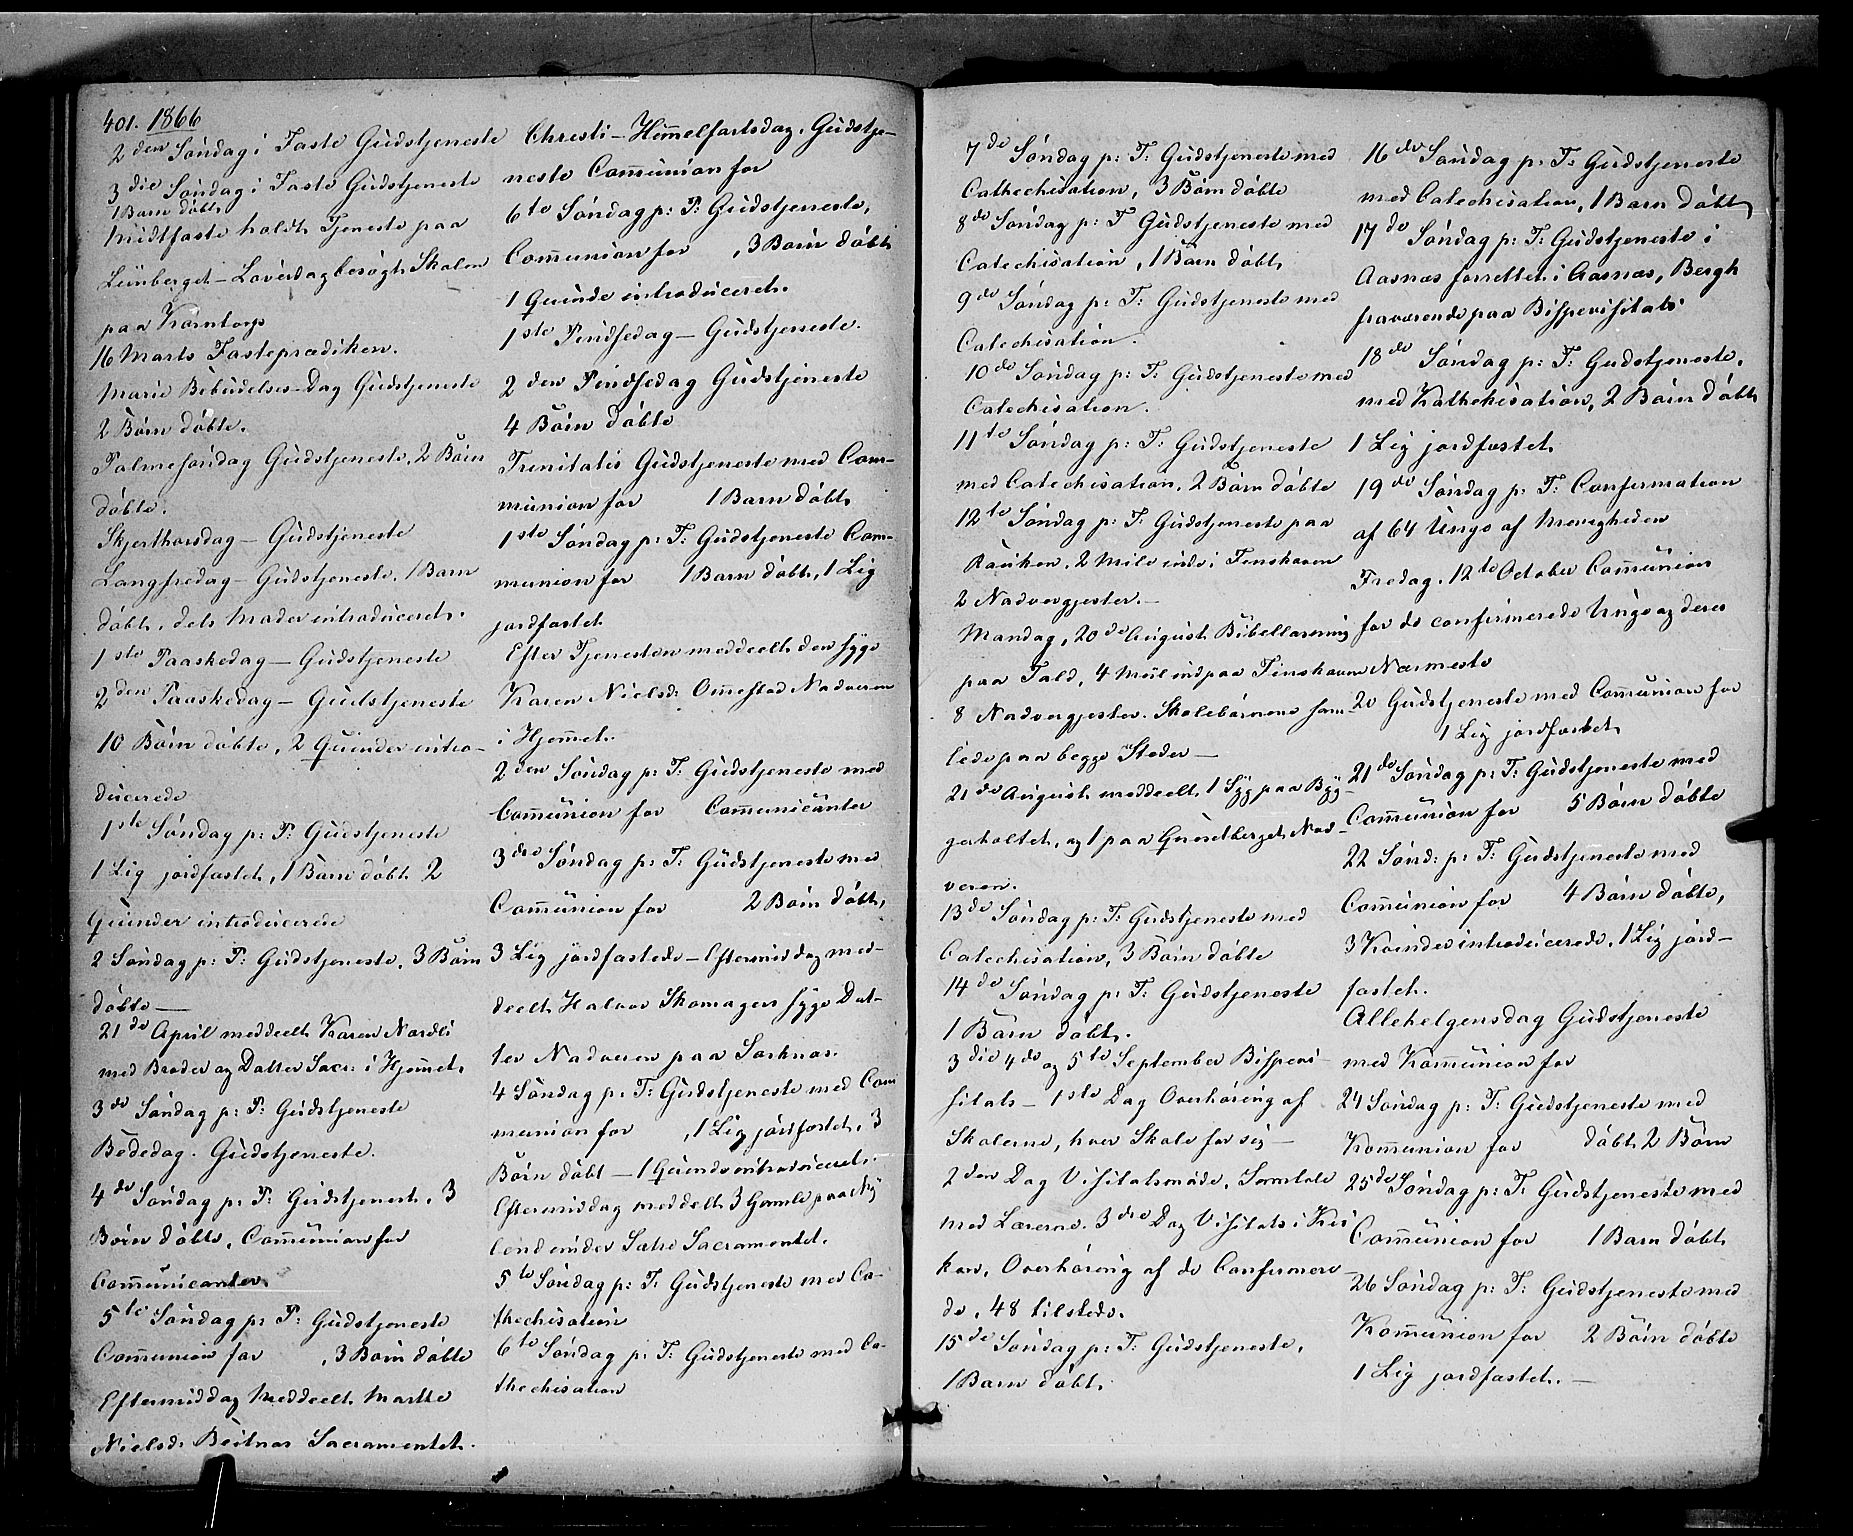 401. 1866
2den Søndag i Faste Gudstjeneste
3die Søndag i Faste Gudstjeneste
1 Barn døbt
Midtfaste holdt Tjeneste paa
Lünberget – Løverdag besøgt Skolen
paa Korntorp
16 Marts Fasteprædiken.
Mariæ Bebudelses-Dag Gudstjeneste
2 Børn døbte.
Palmesøndag Gudstjeneste, 2 Børn
døbte.
Skjærthorsdag – Gudstjeneste
Langfredag – Gudstjeneste, 1 Barn
døbt, dets Moder introduceret.
1ste Paaskedag – Gudstjeneste
2den Paaskedag – Gudstjeneste
10 Børn døbte, 2 Quinder intro-
ducerede
1ste Søndag p: P: Gudstjeneste
1 Lig jordfæstet, 1 Barn døbt 2
Quinder introducerede
2 Søndag p: P: Gudstjeneste, 3 Børn
døbte –
21de April meddeelt Karen Nordli
med Broder og Datter Sacr: i Hjemmet,
3de Søndag p: P: Gudstjeneste
Bededag. Gudstjeneste.
4de Søndag p: P: Gudstjenest, 3
Børn døbte, Communion for
Communicanter
5te Søndag p: P: Gudstjeneste
Communion for , 3 Børn døbte
Eftermiddag meddeelt Marthe
Nielsd: Beitnæs Sacramentet.
Christi-Himmelfartsdag, Gudstje-
neste Communion for
6te Søndag p: P: Gudstjeneste,
Communion for , 3 Børn døbt
1 Quinde introduceret.
1ste Pindsedag – Gudstjeneste.
2den Pindsedag Gudstjeneste
4 Børn døbte
Trinitatis Gudstjeneste med Com-
munion for 1 Barn døbt,
1ste Søndag p: T: Gudstjeneste Com-
munion for 1 Barn døbt, 1 Lig
jordfæstet
Efter Tjenesten meddeelt den syge
Karen Nielsd: Ommestad Nadveren
i Hjemmet.
2den Søndag p: T: Gudstjeneste med
Communion for Communicanter
3die Søndag p: T: Gudstjeneste med
Communion for 2 Børn døbt,
3 Lig jordfæstede – Eftermiddag med-
deelt Halvor Skomagers syge Dat-
ter Nadveren paa Sorknæs.
4 Søndag p: T: Gudstjeneste med Com
munion for , 1 Lig jordfæstet, 3
Børn døbt – 1 Quinde introduceret.
Eftermiddag meddelt 3 Gamle paa Ny
lend under Sætre Sacramentet.
5te Søndag p: T: Gudstjeneste med Ca-
thechisation
6te Søndag p: T: Gudstjeneste med Ca-
thechisation
7de Søndag p: T: Gudstjeneste med
Cathechisation, 3 Børn døbte
8de Søndag p: T Gudstjeneste med
Catechisation, 1 Barn døbt,
9de Søndag p: T: Gudstjeneste med
Catechisation.
10de Søndag p: T: Gudstjeneste med
Catechisation.
11te Søndag p: T: Gudstjeneste
med Catechisation, 2 Børn døbte
12te Søndag p: T: Gudstjeneste paa
Rauken, 2 Mile inde i Finskoven
2 Nadvergjester. –
Mandag, 20de August Bibellæsning
paa Fald, 4 Miil ind paa Finskoven
8 Nadvergjester. Skolebørnene sam-
lede paa begge Steder –
21de August meddeelt 1 Syg paa Byg-
geholtet, og 1 paa Quindberget Nad-
veren.
13de Søndag p: T: Gudstjeneste med
Catechisation, 3 Børn døbte
14de Søndag p: T: Gudstjeneste
1 Barn døbt.
3die 4de og 5te September Bispevi-
sitats – 1ste Dag Overhøring af
Skolerne, hver Skole for sig –
2den Dag Visitatsmøde, Samtale
med Lærerne. 3die Dag Visitats i Kir
ken, Overhøring af de Confirmere-
de, 48 tilstede.
15de Søndag p: T: Gudstjeneste,
1 Barn døbt.
16de Søndag p: T: Gudstjeneste
med Catechisation, 1 Barn døbt,
17de Søndag p: T: Gudstjeneste i
Aasnæs forrettet i Aasnæs, Bergh
fraværende paa Bispevisitats
18de Søndag p: T: Gudstjeneste,
med Kathekisation, 2 Børn døbt
1 Lig jordfæstet.
19de Søndag p: T: Confirmation
af 64 Unge af Menigheden
Fredag, 12te October Communion
for de confirmerede Unge og deres
Nærmeste
20 Gudstjeneste med Communion for
1 Lig jordfæstet
21de Søndag p: T: Gudstjeneste med
Communion for 5 Børn døbte
22 Sønd: p: T: Gudstjeneste med
Communion for 4 Børn døbte,
3 Kvinder introducerede, 1 Lig jord-
fæstet.
Allehelgensdag Gudstjeneste
med Kommunion for
24 Søndag p: T: Gudstjeneste med
Kommunion for døbt 2 Børn
25de Søndag p: T: Gudstjeneste med
Communion for 1 Barn døbt
26 Søndag p: T: Gudstjeneste med
Kommunion for 2 Børn døbte
1 Lig jordfæstet. –